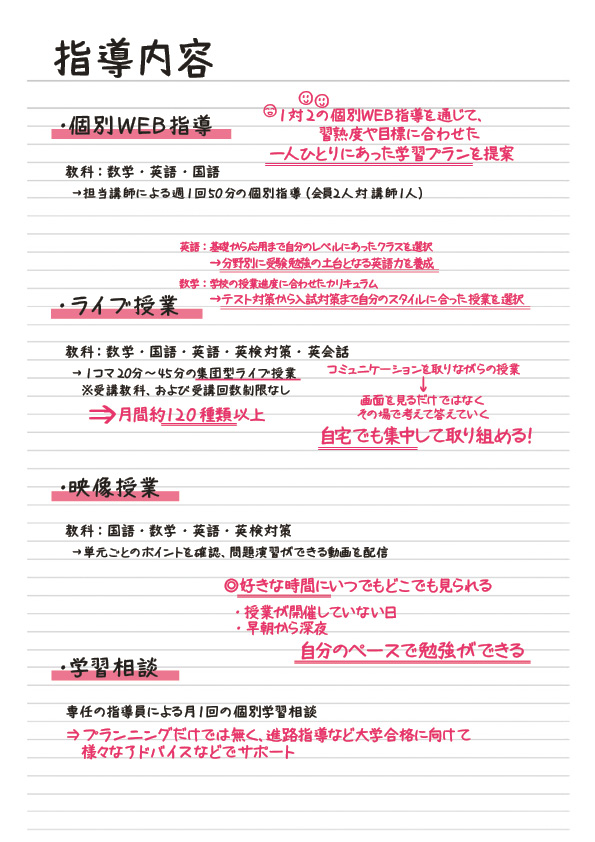 指導内容
・個別WEB指導
1対2の個別WEB指導を通じて、
習熟度や目標に合わせた
一人ひとりにあった学習プランを提案
教科：数学・英語・国語
→担当講師による週1回50分の個別指導（会員2人対講師1人）
英語：基礎から応用まで自分のレベルにあったクラスを選択
→分野別に受験勉強の土台となる英語力を養成
数学：学校の授業進度に合わせたカリキュラム
→テスト対策から入試対策まで自分のスタイルに合った授業を選択
・ライブ授業
教科：数学・国語・英語・英検対策・英会話
→1コマ20分～45分の集団型ライブ授業
※受講教科、および受講回数制限なし
⇒月間約120種類以上
コミュニケーションを取りながらの授業
↓
画面を見るだけではなく
その場で考えて答えていく
自宅でも集中して取り組める！
・映像授業
教科：国語・数学・英語・英検対策
→単元ごとのポイントを確認、問題演習ができる動画を配信
◎好きな時間にいつでもどこでも見られる
・授業が開催していない日
・早朝から深夜
自分のペースで勉強ができる
・学習相談
専任の指導員による月1回の個別学習相談
⇒プランニングだけでは無く、進路指導など大学合格に向けて
様々なアドバイスなどでサポート